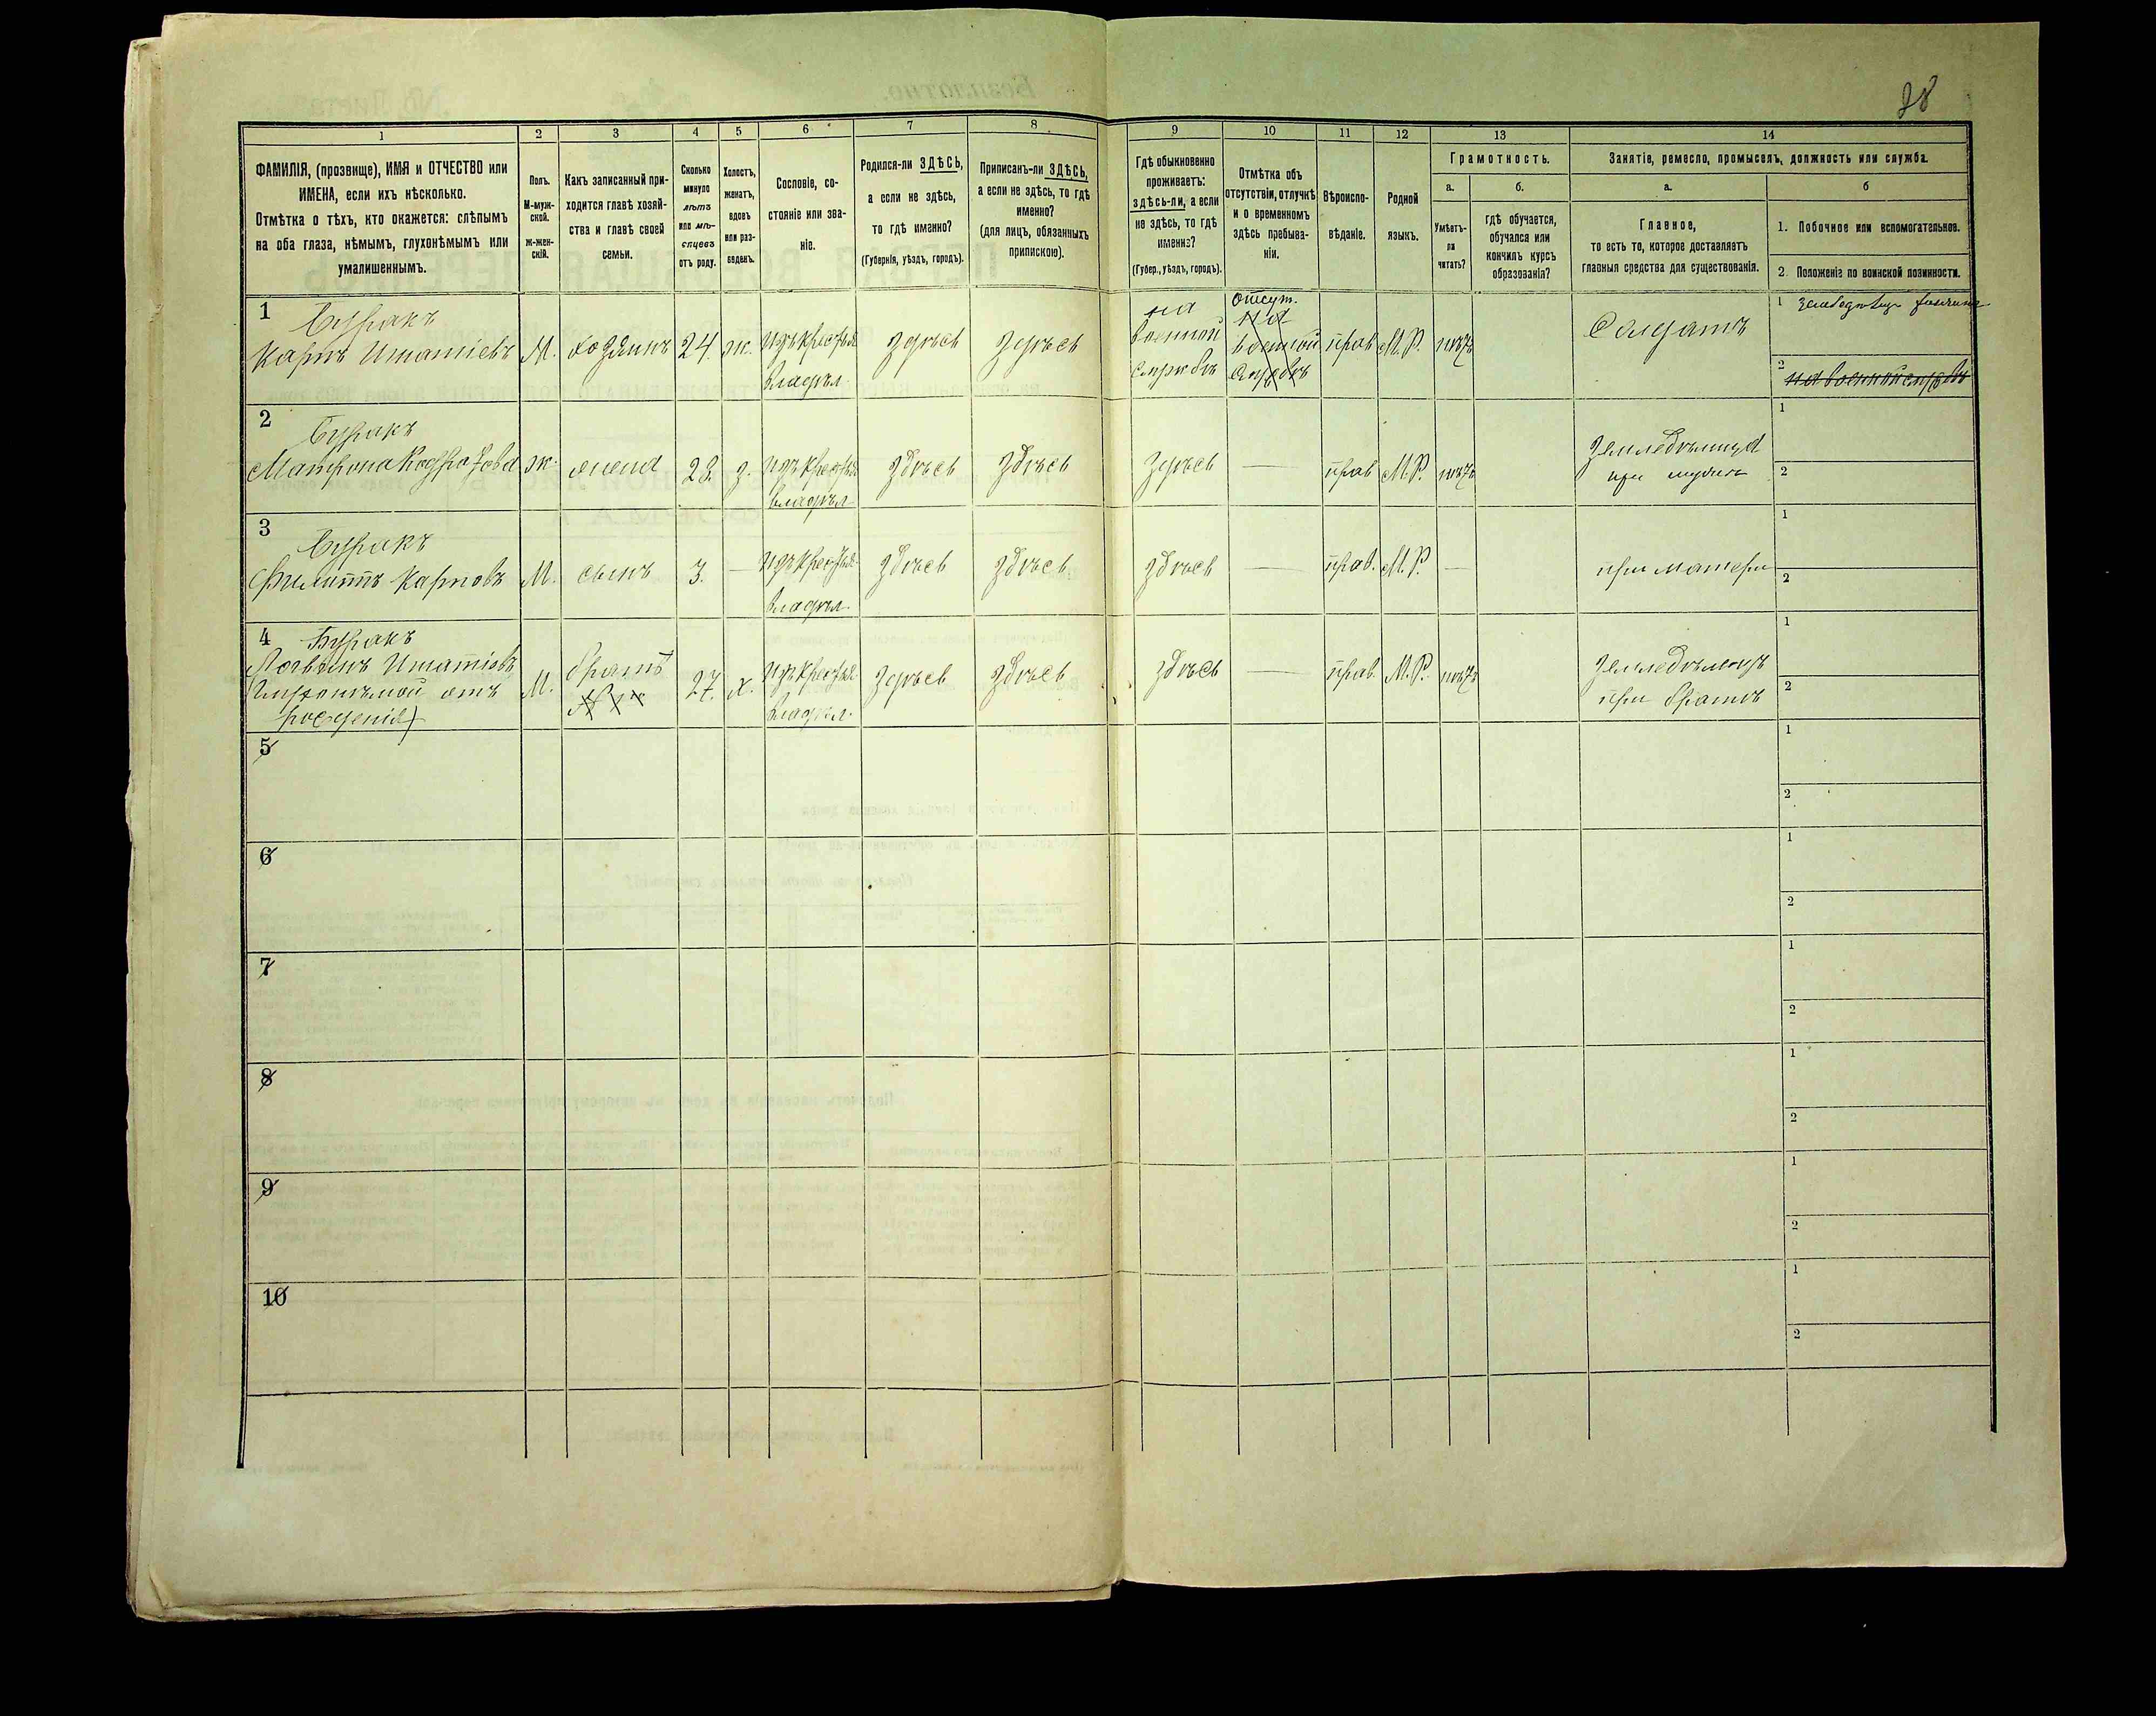 28
1 2 3 4 5 6 7 8 9 10 11 12 13 14
ФАМИЛІЯ, (прозвище), ИМЯ и ОТЧЕСТВО или
ИМЕНА, если ихъ нѣсколько.
Отмѣтка о тѣхъ, кто окажется: слѣпымъ
на оба глаза, нѣмымъ, глухонѣмымъ или
умалишеннымъ.
Полъ.
М-муж-
ской.
Ж-жен-
скій.
Какъ записанный при-
ходится главѣ хозяй-
ства и главѣ своей
семьи.
Сколько
минуло
лѣтъ
или мѣ-
сяцевъ
отъ роду.
Холостъ,
женатъ,
вдовъ
или раз-
веденъ.
Сословіе, со-
стояніе или зва-
ніе.
Родился-ли ЗДѢСЬ,
а если не здѣсь,
то гдѣ именно?
(Губернія, уѣздъ, городъ).
Приписанъ-ли ЗДѢСЬ,
а если не здѣсь, то гдѣ
именно?
(для лицъ, обязанныхъ
припискою).
Гдѣ обыкновенно
проживаетъ:
здѣсь-ли, а если
не здѣсь, то гдѣ
именно?
(Губер., уѣздъ, городъ).
Отмѣтка объ
отсутствіи, отлучкѣ
и о временномъ
здѣсь пребыва-
ніи.
Вѣроиспо-
вѣданіе.
Родной
языкъ.
Грамотность.
а.
Умѣетъ-
ли
читать?
б.
гдѣ обучается,
обучался или
кончилъ курсъ
образованія?
Занятіе, ремесло, промыселъ, должность или служба.
а.
Главное,
то есть то, которое доставляетъ
главныя средства для существованія.
б
1. Побочное или вспомогательное.
2. Положеніе по воинской повинности.
1
Буракъ
Карпъ Игнатіевъ
М.
хозяинъ
24.
ж.
изъ крестьян
владѣл
здѣсь
здѣсь
на
военной
службѣ
отсут.
на
военной
службѣ
прав
М.Р.
нѣтъ
Солдатъ
1
2
на военной службѣ
2
Буракъ
Матрона Кодратова
ж.
жена
23.
з.
изъ крестьян
владѣл
здѣсь
здѣсь
здѣсь
—
прав
М.Р.
нѣтъ
Земледѣлица
при мужѣ
1
2
3
Буракъ
Филиппъ Карповъ
М.
сынъ
3.
—
изъ крестьян
владѣл.
здѣсь
здѣсь
здѣсь
—
прав.
М.Р.
—
при матери
1
2
4
Буракъ
Логвинъ Игнатіевъ
(глухонѣмой отъ
рожденія)
М.
братъ
27.
х.
изъ крестьян
владѣл.
здѣсь
здѣсь
здѣсь
—
прав.
М.Р.
нѣтъ
Земледѣлецъ
при братѣ
1
2
5
1
2
6
1
2
7
1
2
8
1
2
9
1
2
10
1
2